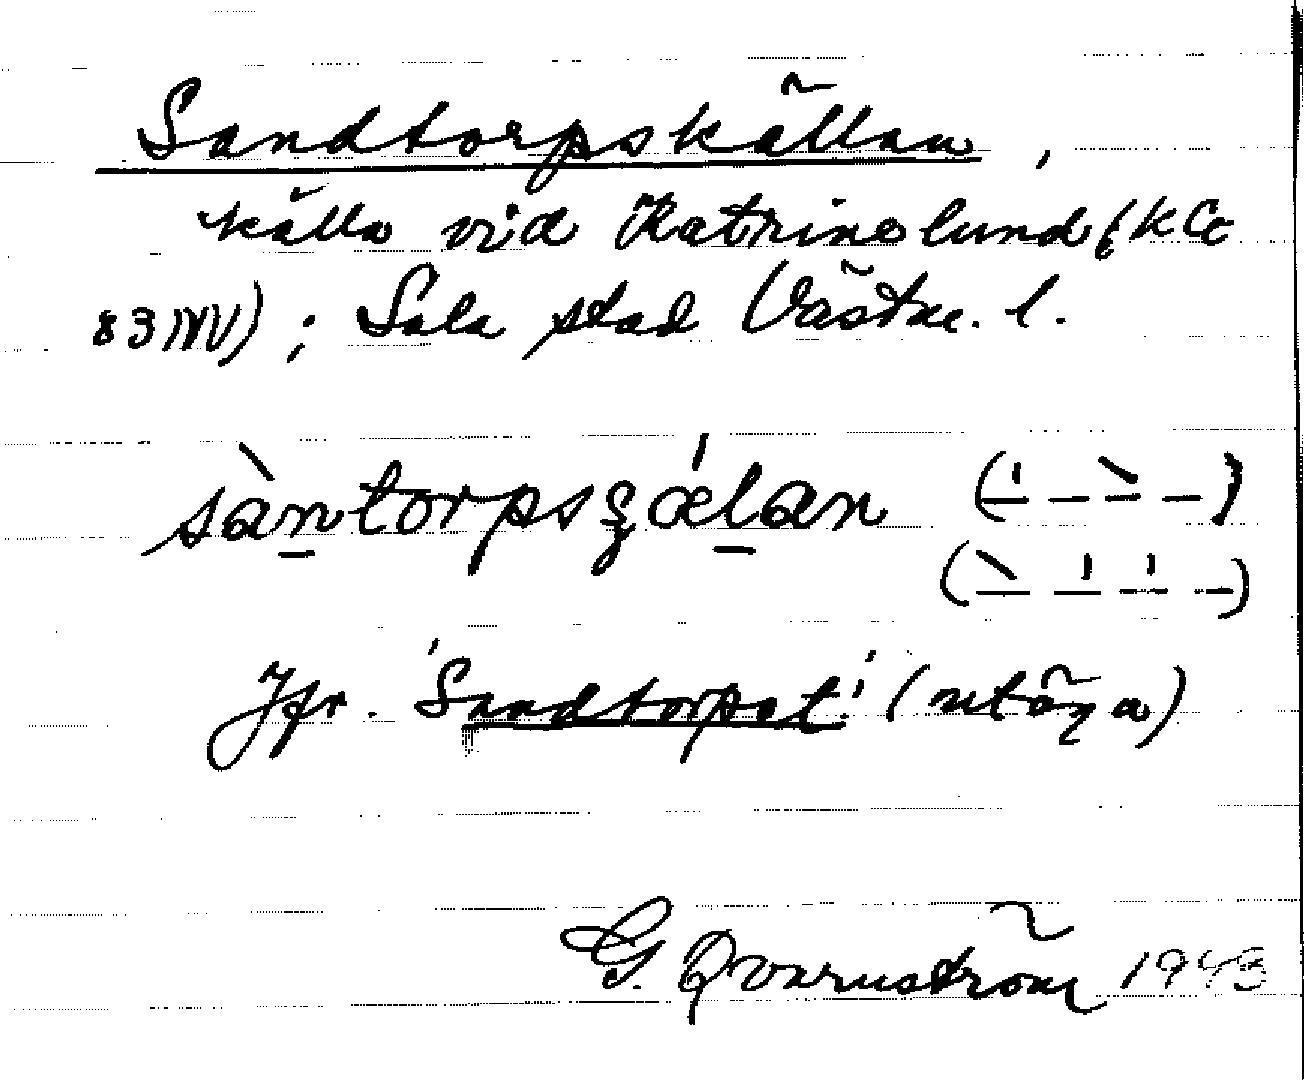 Sandtorpskällan,
källa vid Katrinelund (KCc
83NV); Sala stad Västm. l.
sàntorpsʒǽlan
Jfr. 'Sandtorpet' (utäga)
G. Qvarnström 1943